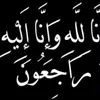 نَّا لِلّهِ وَإِنَّا إِلَيْهِ
رَاجِعُونَ